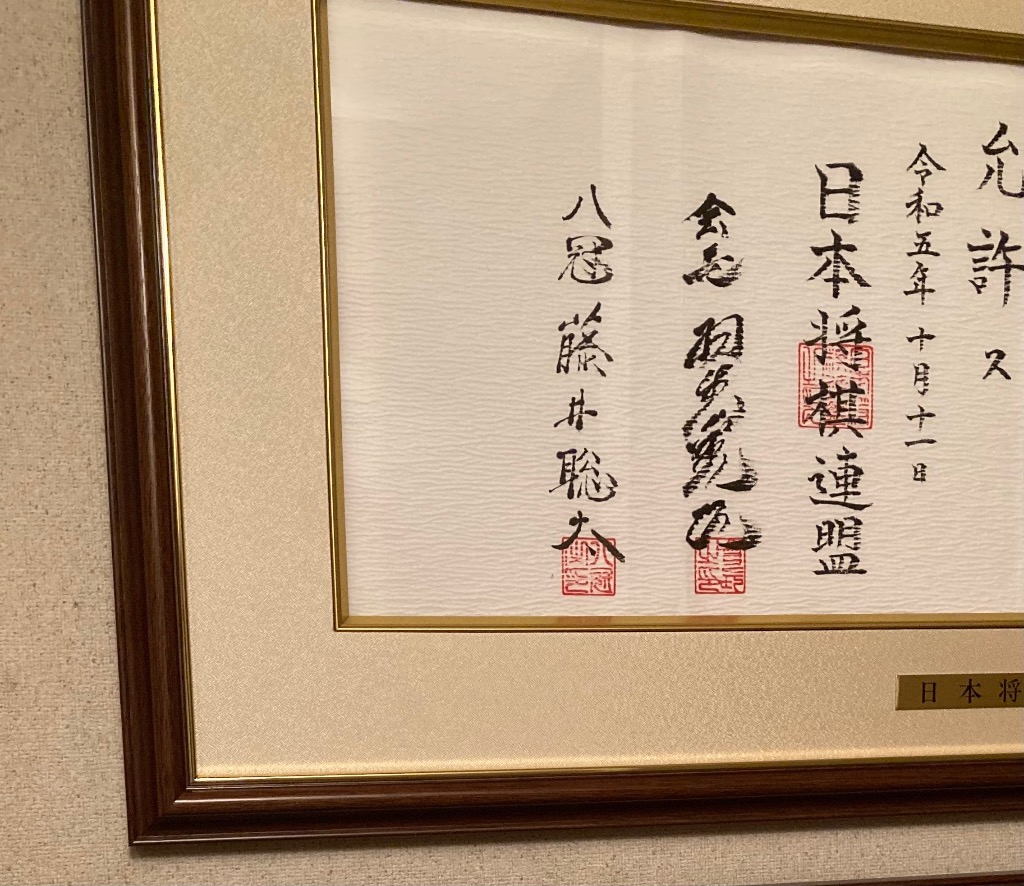 允許ス
令和五年十月十一日
日本将棋連盟
会長 羽生善治
八冠 藤井聡太
日本将